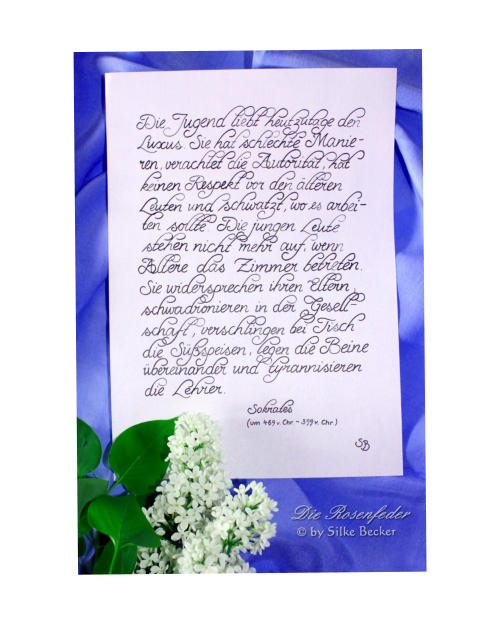 Die Jugend liebt heutzutage den
Luxus. Sie hat schlechte Manie-
ren, verachtet die Autorität, hat
keinen Respekt vor den älteren
Leuten und schwatzt, wo es arbei-
ten sollte. Die jungen Leute
stehen nicht mehr auf, wenn
Ältere das Zimmer betreten.
Sie widersprechen ihren Eltern,
schwadronieren in der Gesell-
schaft, verschlingen bei Tisch
die Süßspeisen, legen die Beine
übereinander und tyrannisieren
die Lehrer.
Sokrates
(um 469 v. Chr. - 399 v. Chr.)
SB
Die Rosenfeder
© by Silke Becker